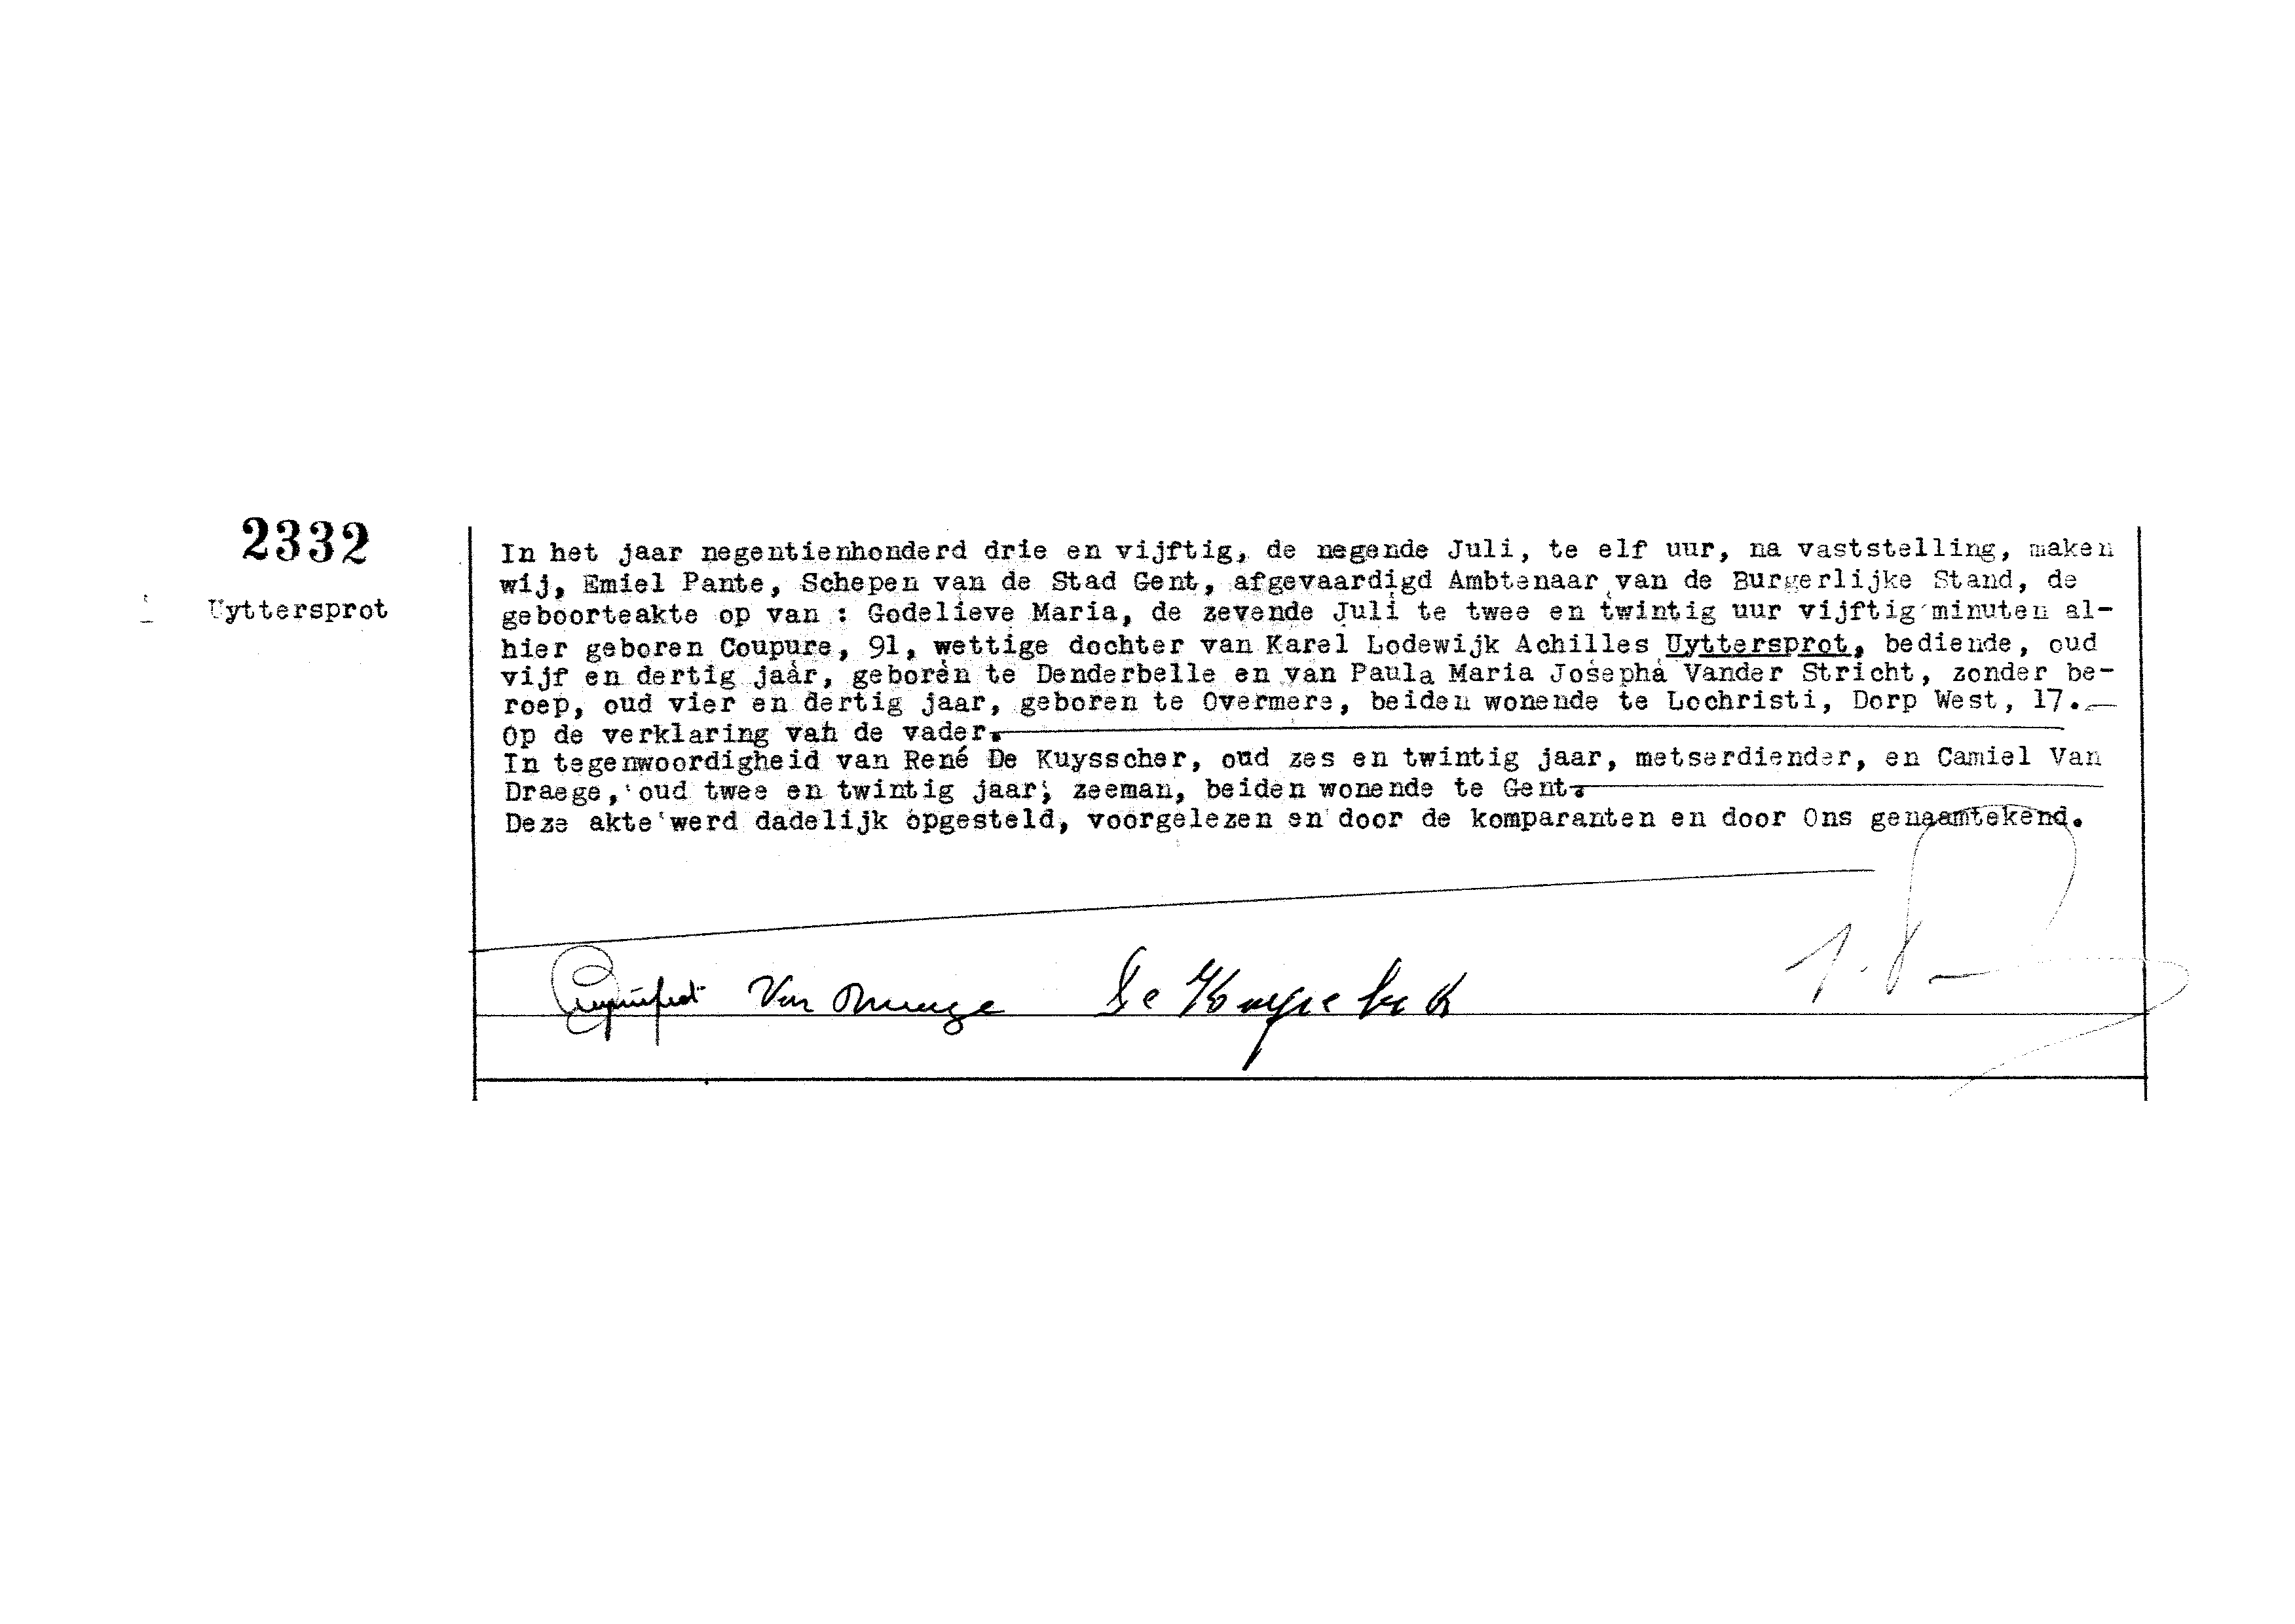 2332
Uyttersprot
In het jaar negentienhonderd drie en vijftig, de negende Juli, te elf uur, na vaststelling, maken
wij, Emiel Pante, Schepen van de Stad Gent, afgevaardigd Ambtenaar van de Burgerlijke Stand, de
geboorteakte op van : Godelieve Maria, de zevende Juli te twee en twintig uur vijftig minuten al-
hier geboren Coupure, 91, wettige dochter van Karel Lodewijk Achilles Uyttersprot, bediende, oud
vijf en dertig jaar, geboren te Denderbelle en van Paula Maria Josepha Vander Stricht, zonder be-
roep, oud vier en dertig jaar, geboren te Overmere, beiden wonende te Lochristi, Dorp West, 17.
Op de verklaring van de vader.
In tegenwoordigheid van René De Kuysscher, oud zes en twintig jaar, metserdiender, en Camiel Van
Draege, oud twee en twintig jaar, zeeman, beiden wonende te Gent.
Deze akte werd dadelijk opgesteld, voorgelezen en door de komparanten en door Ons genaamtekend.
Van Draege De